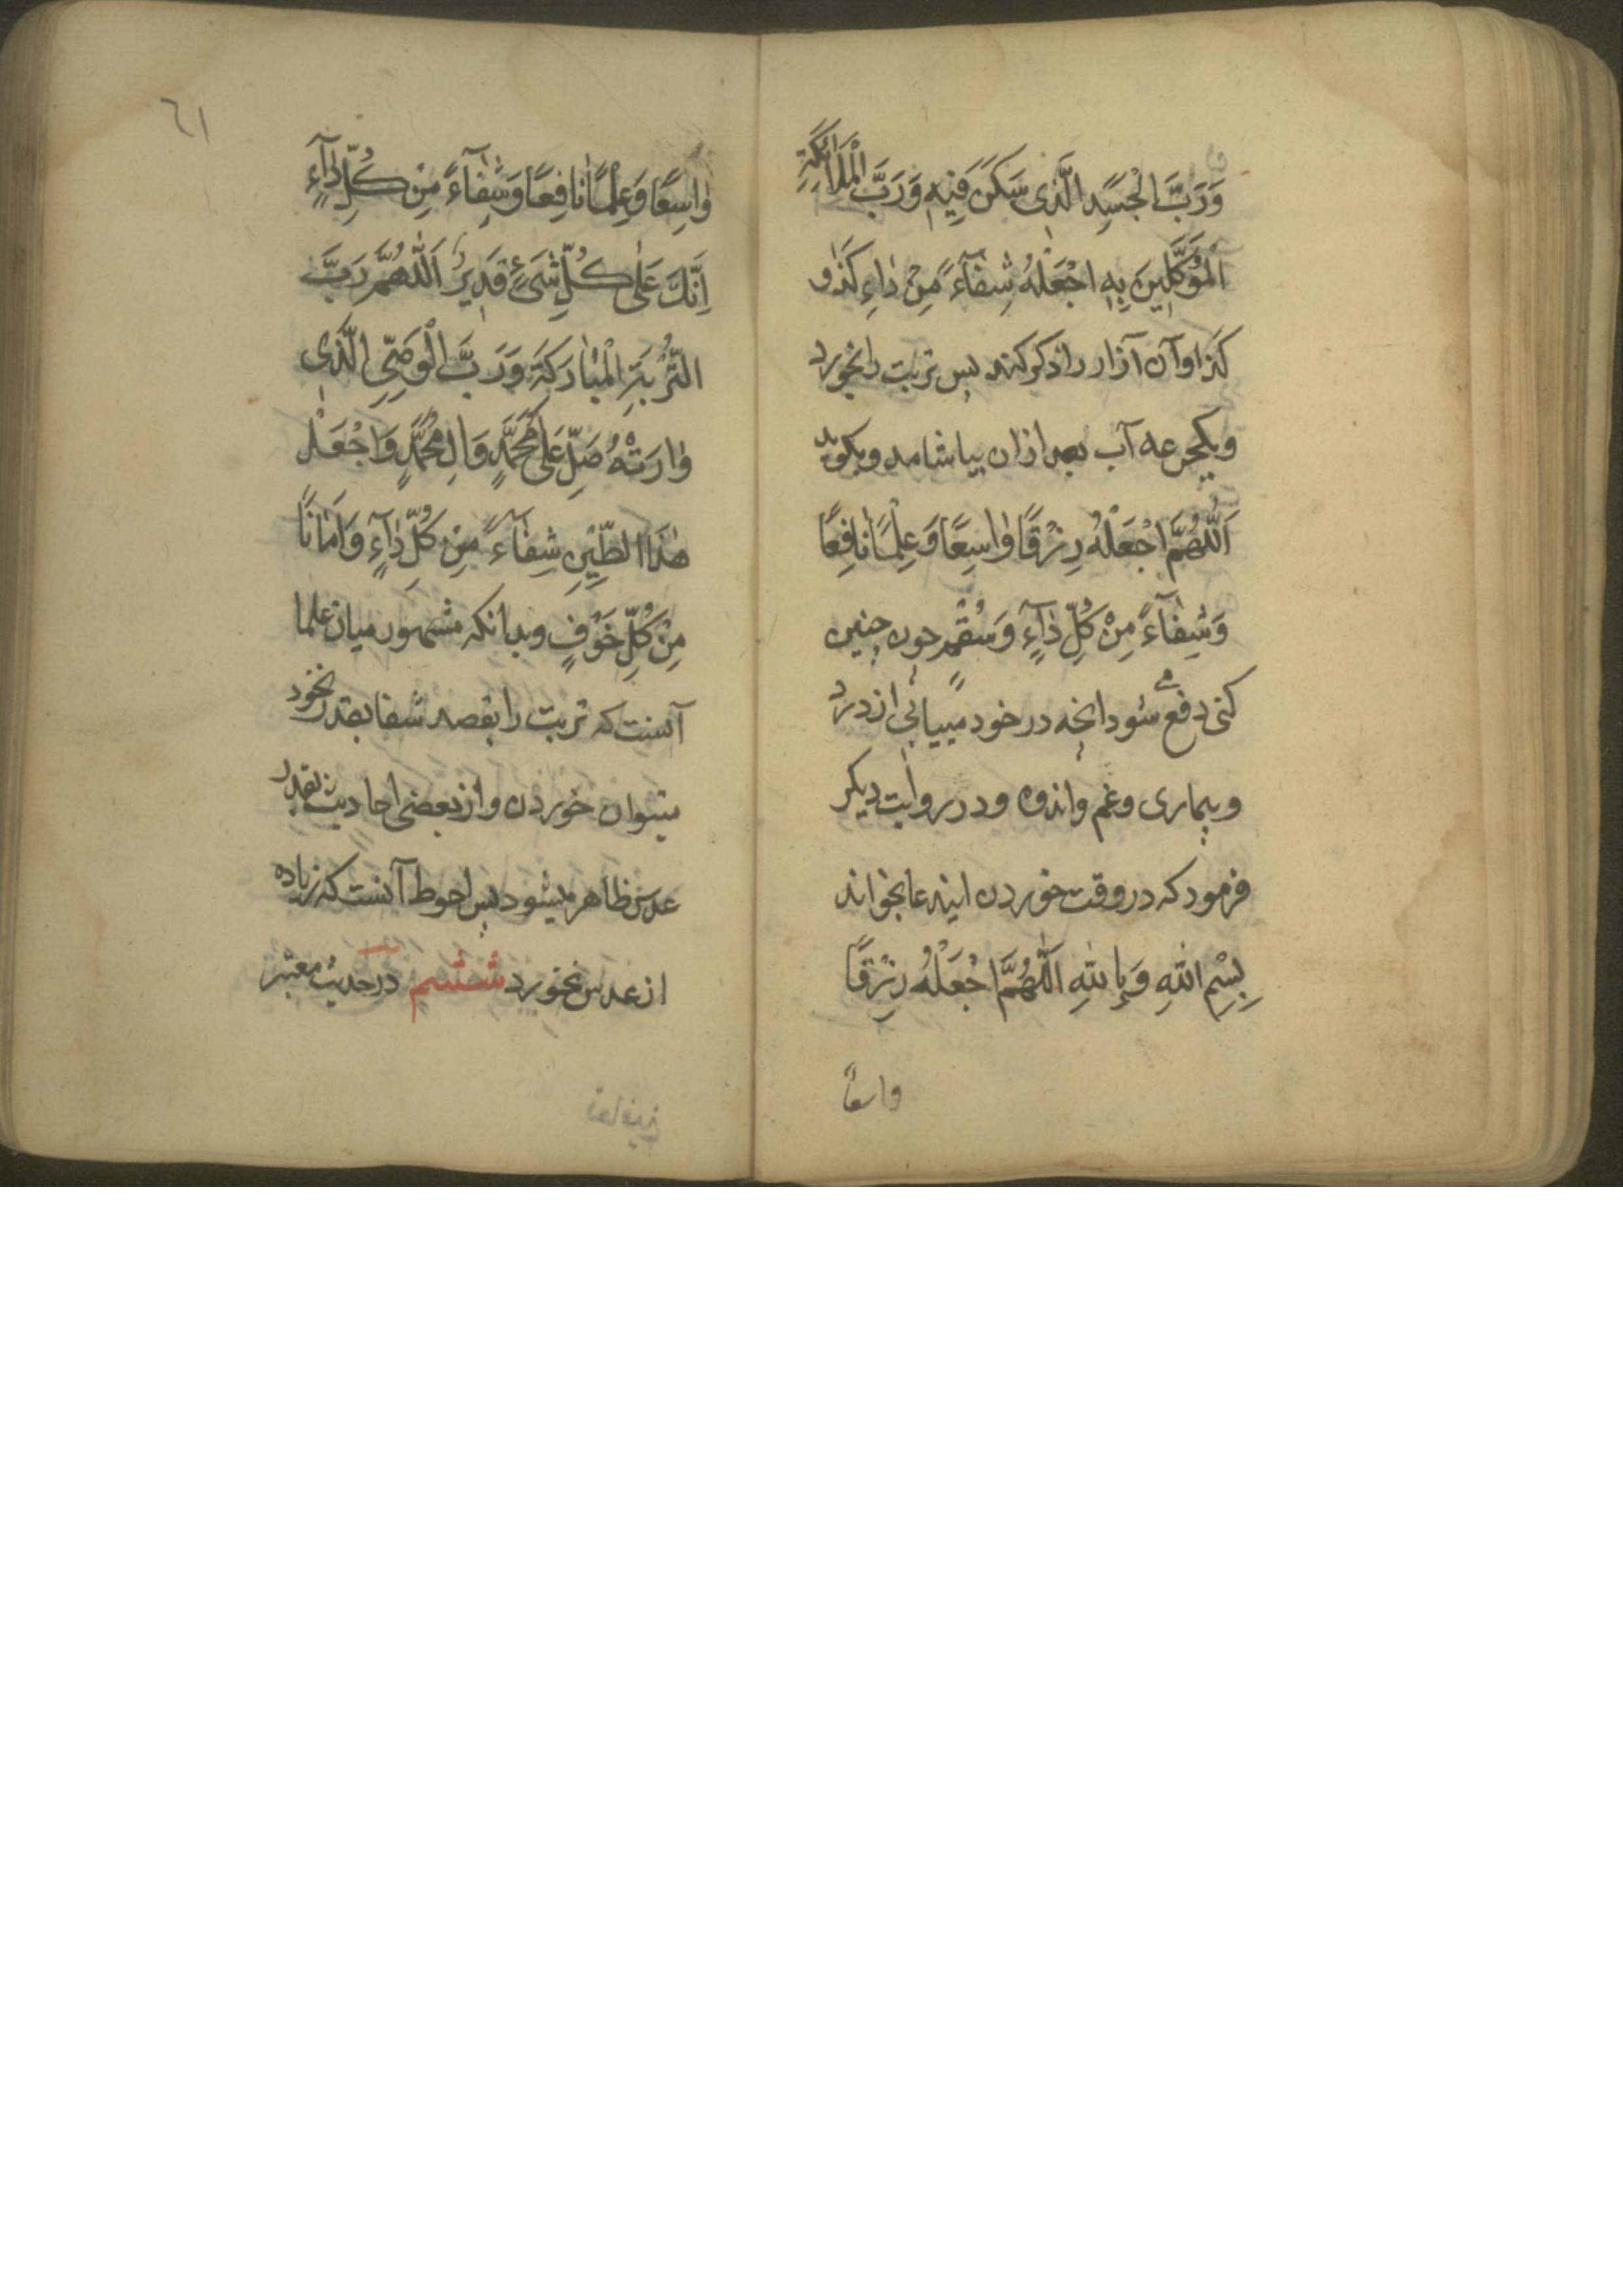 وَرَبَّ الْجَسَدِ الَّذِی سَکَنَ فِیهِ وَرَبَّ الْمَلَائِکَةِ
الْمُوَکَّلِینَ بِهِ اجْعَلْهُ شِفَآءً مِنْ دٰاءِ کَذٰا و
کذا وآن آزار را ذکر کند بس تربت را بخورد
ویکجرعه آب بعد ازان بیاشامد وبکوید
اَللّٰهُمَّ اجْعَلْهُ رِزْقًا وٰاسِعًا وَعِلْمًا نٰافِعًا
وَشِفٰآءً مِنْ کُلِّ دٰآءٍ وَسُقْمٍ جون جنین
کنی دفع مے شود انجه در خود مییابی از درد
وبیماری وغم واندوه ودر روایت دیکر
فرمود که در وقت خوردن ایندعا بخواند
بِسْمِ اللهِ وَبِاللهِ اَللّٰهُمَّ اجْعَلْهُ رِزْقًا
واسعًا
٦١
وٰاسِعًا وَعِلْمًا نٰافِعًا وَشِفٰآءً مِنْ کُلِّ دٰآءٍ
اِنَّكَ عَلٰی کُلِّ شَیْءٍ قَدِیرٌ اَللّٰهُمَّ رَبَّ
التُّرْبَةِ الْمُبٰارَکَةِ وَرَبَّ الْوَصِیِّ الَّذِی
وٰارَتْهُ صَلِّ عَلٰی مُحَمَّدٍ وَالِ مُحَمَّدٍ وَاجْعَلْ
هٰذَا الطِّینِ شِفٰآءً مِنْ کُلِّ دٰآءٍ وَاَمٰانًا
مِنْ کُلِّ خَوْفٍ وبدانکه مشهور میان علما
آنست که تربت را بقصد شفا بقدر نخود
میتوان خوردن واز بعضی احادیث بقدر
عدس ظاهر میشود بس احوط آنست که زیاده
از عدس نخورد ششم در حدیث معتبر